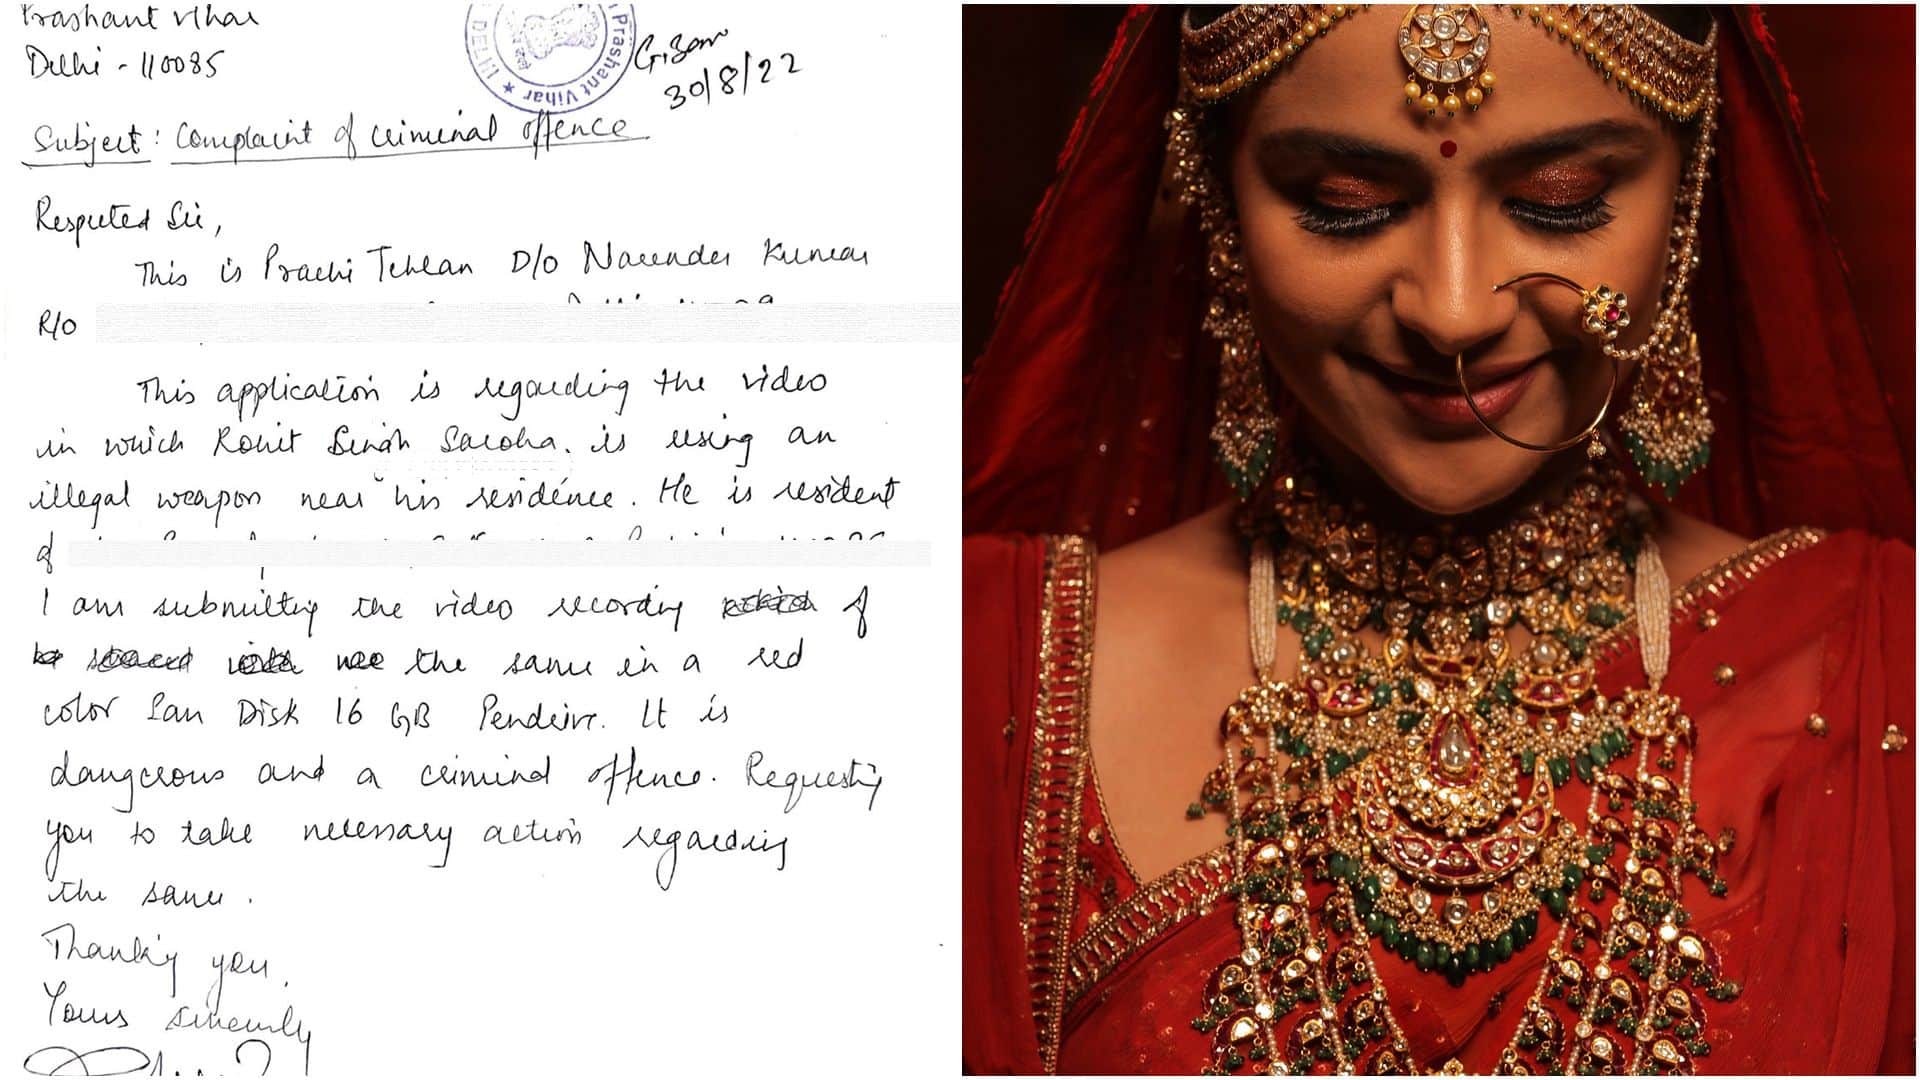 Prashant Vihar
Delhi - 110085
DELHI ★ Prashant Vihar
30/8/22
Subject: Complaint of criminal offence
Respected Sir,
This is Prachi Tehlan D/o Narender Kumar
R/O
This application is regarding the video
in which Rohit Singh Saroha. is using an
illegal weapon near his residence. He is resident
of
I am submitting the video recording of
the same in a red
color San Disk 16 GB Pendrive. It is
dangerous and a criminal offence. Requesting
you to take necessary action regarding
the same.
Thanking you.
Yours sincerely